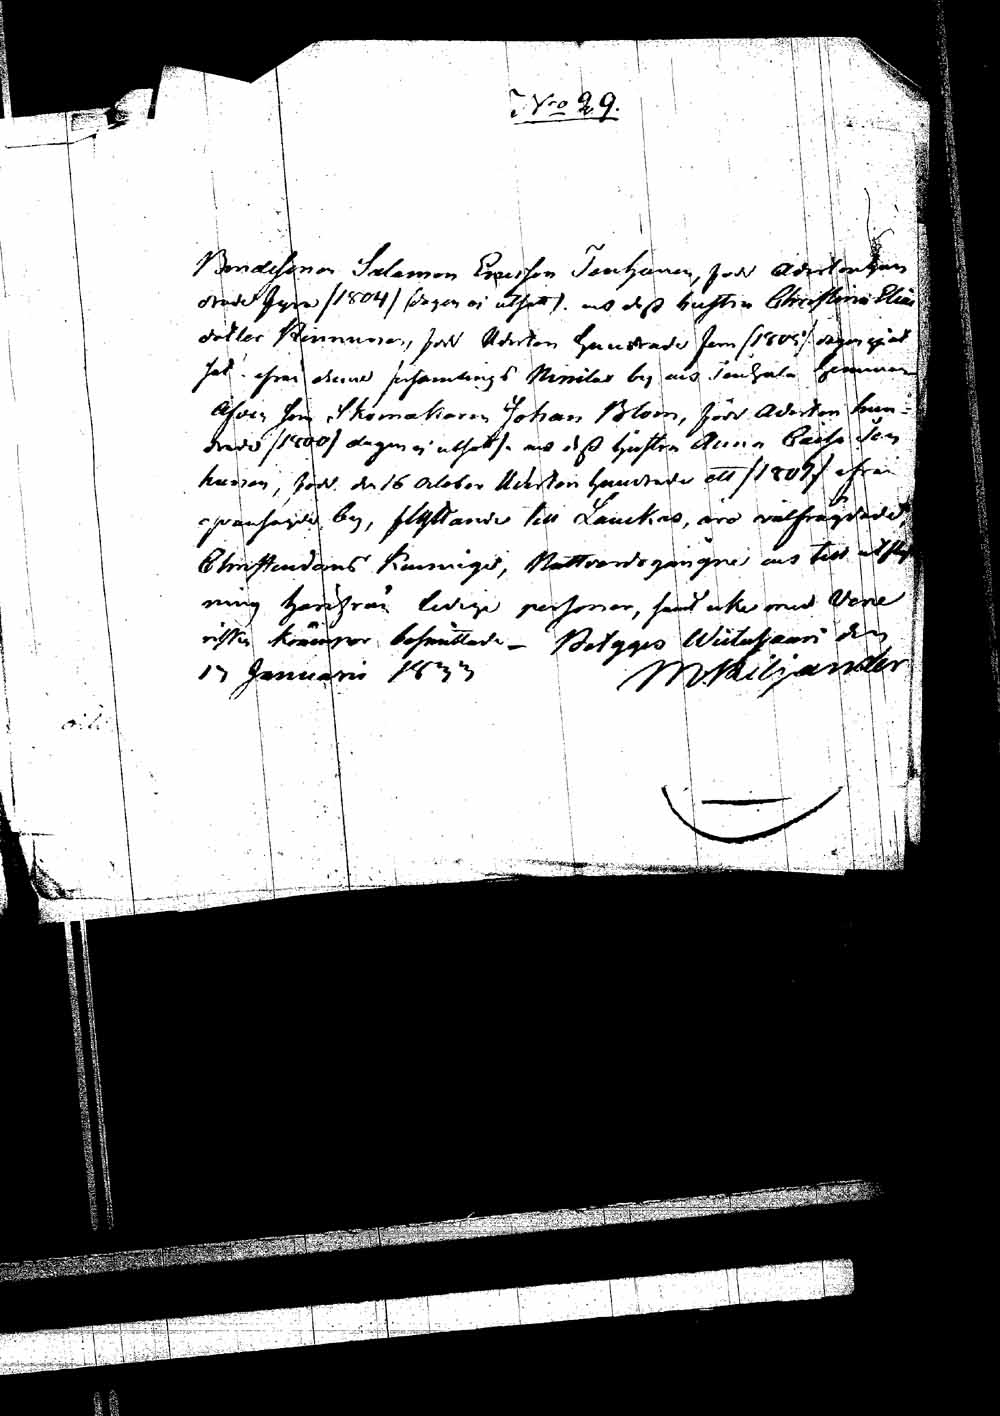 Nro 29.
Bondesonen Salomon Ericsson Tenhunen, född Adertonhun
drade fyra /:1804:/ dagen ej utsatt/. och dess hustru Christina Elias
dotter Kinnunen, född Aderton hundrade fem /1805/ dagen ej ut
satt från denne församlings Niinilax by och hemman
Äfven som Skomakaren Johan Blom, född Aderton hun-
drade /1800/ dagen ej utsatt/. och dess hustru Anna Caisa Ten
hunen, född den 16 October Aderton hundrade ett /1801/ från
by, flyttande till Lauckas, äro välfrägdade,
Christendoms kunnige, Nattvardsgångne och till utflytt
ning härifrån ledige personer, samt icke med Vene
riska krämpor besmittade – Betygas Wiitasaari den
17 Januarii 1833 M. Kiljander